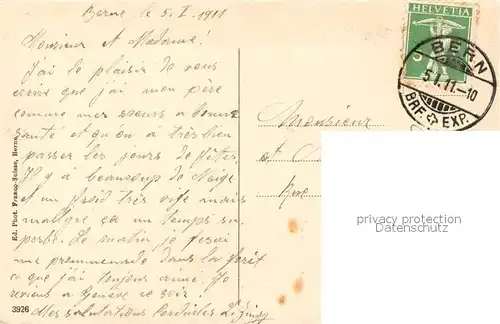 Berne le 5. I. 1911
Monsieur et Madame!
J'ai le plaisir de vous
ecrire que j'ai mon père
comme mes soeurs a bonne
santé et qu'on a très bien
passer les jours de fêtes.
Il y a beaucoup de Neige
et un froid très vife mais
malgre ça un temps su-
perbe. Le matin je ferai
une promenade dans la forêt
ce que j'ai toujours aimé. Je
reviens a Genève ce soir!
Mes salutations
HELVETIA
5
BERN
5.I.11.-10
BRF. EXP.
Monsieur
et
Rue
privacy protection
Ed. Phot. Franco-Suisse, Berne
3926